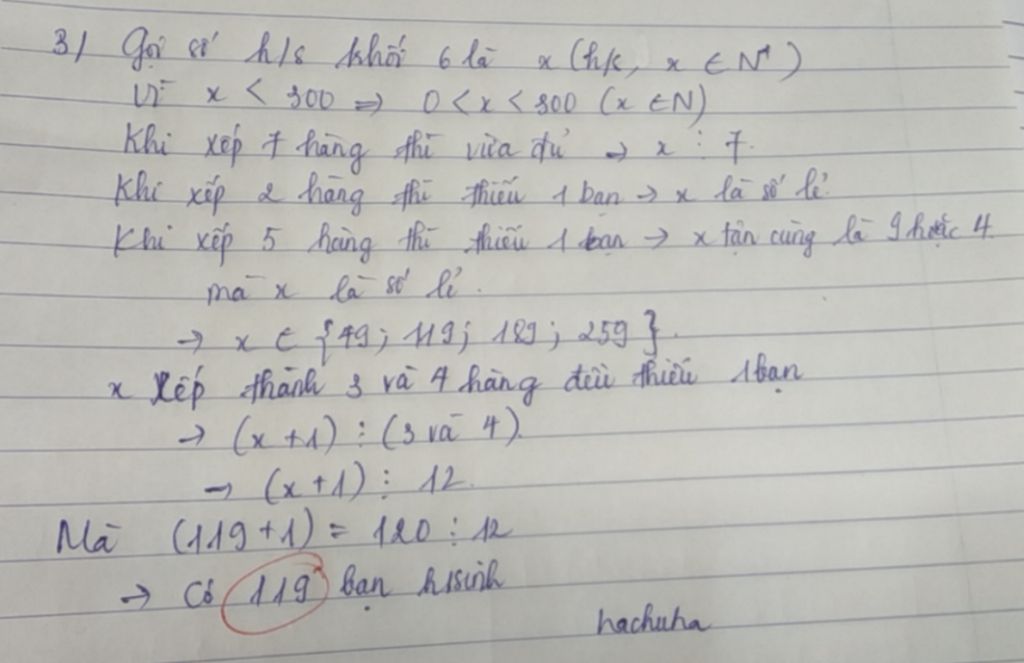 3/ Gọi số h/s khối 6 là x (h/s, x ∈ N*)
Vì x < 300 => 0 < x < 300 (x ∈ N)
Khi xếp 7 hàng thì vừa đủ → x ⋮ 7.
Khi xếp 2 hàng thì thiếu 1 bạn → x là số lẻ.
Khi xếp 5 hàng thì thiếu 1 bạn → x tận cùng là 9 hoặc 4
mà x là số lẻ.
→ x ∈ {49; 119; 189; 259}.
x Xếp thành 3 và 4 hàng đều thiếu 1 bạn
→ (x+1) ⋮ (3 và 4).
→ (x+1) ⋮ 12.
Mà (119+1) = 120 ⋮ 12
→ Có 119 bạn h/sinh
hachuha